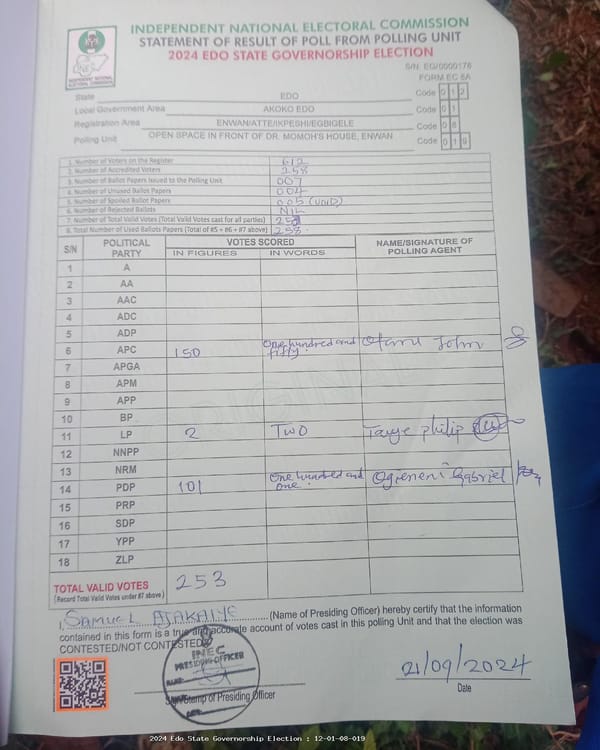 INDEPENDENT NATIONAL ELECTORAL COMMISSION
STATEMENT OF RESULT OF POLL FROM POLLING UNIT
2024 EDO STATE GOVERNORSHIP ELECTION
S/N: EG/0000176
FORM EC 8A
INEC
INDEPENDENT NATIONAL
ELECTORAL COMMISSION
State EDO Code 0 1 2
Local Government Area AKOKO EDO Code 0 1
Registration Area ENWAN/ATTE/IKPESHI/EGBIGELE Code 0 8
Polling Unit OPEN SPACE IN FRONT OF DR. MOMOH'S HOUSE, ENWAN Code 0 1 9
1. Number of Voters on the Register 612
2. Number of Accredited Voters 258
3. Number of Ballot Papers Issued to the Polling Unit 007
4. Number of Unused Ballot Papers 004
5. Number of Spoiled Ballot Papers 005 (VOID)
6. Number of Rejected Ballots NIL
7. Number of Total Valid Votes (Total Valid Votes cast for all parties)
8. Total Number of Used Ballots Papers (Total of #5 + #6 + #7 above) 258
S/N POLITICAL PARTY VOTES SCORED NAME/SIGNATURE OF POLLING AGENT
IN FIGURES IN WORDS
1 A
2 AA
3 AAC
4 ADC
5 ADP
6 APC 150 One hundred and fifty John
7 APGA
8 APM
9 APP
10 BP
11 LP 2 TWO Taiye philip
12 NNPP
13 NRM
14 PDP 101 One hundred and one Gabriel
15 PRP
16 SDP
17 YPP
18 ZLP
TOTAL VALID VOTES 253
(Record Total Valid Votes under #7 above)
I, SAMUEL (Name of Presiding Officer) hereby certify that the information
contained in this form is a true and accurate account of votes cast in this polling Unit and that the election was
CONTESTED/NOT CONTESTED
INEC
PRESIDING OFFICER
21/09/2024
Stamp of Presiding Officer
Date
2024 Edo State Governorship Election : 12-01-08-019